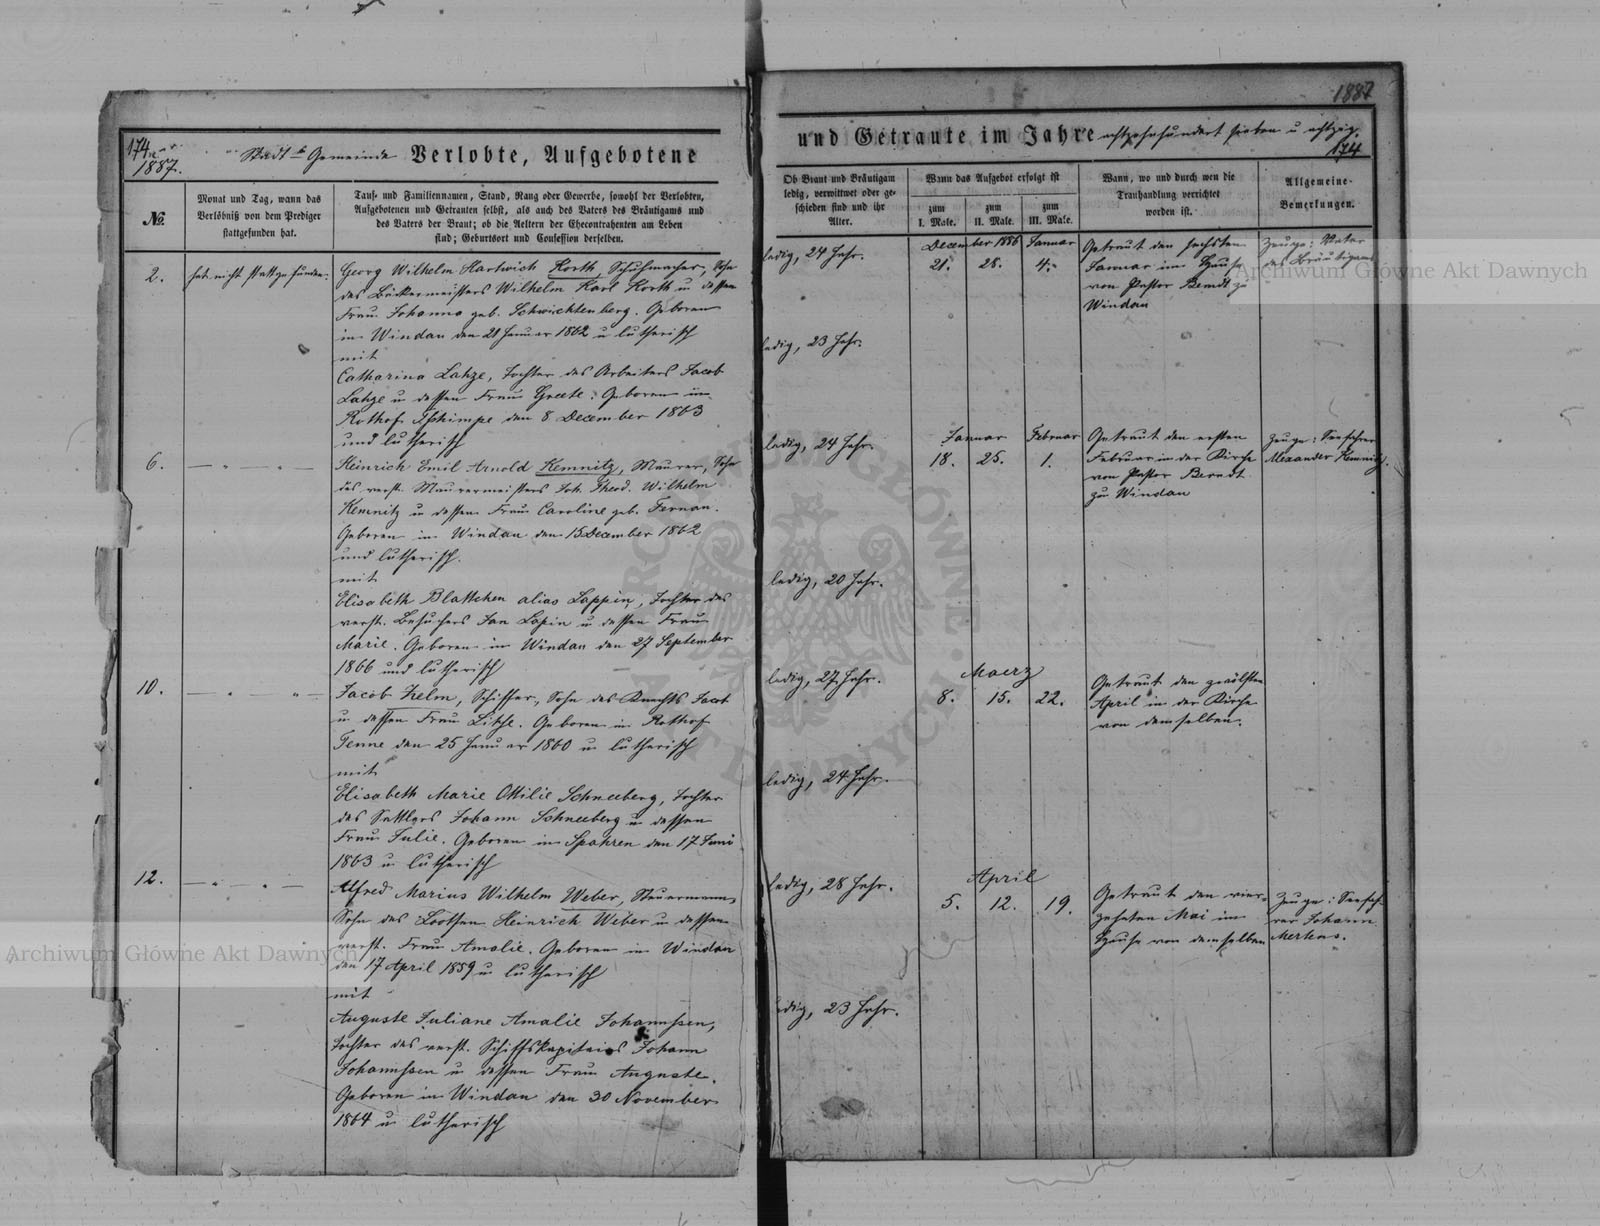 174.
1887.
Stadt-Gemeinde Verlobte, Aufgebotene
№.
Monat und Tag, wann das
Verlöbniß von dem Prediger
stattgefunden hat.
Tauf- und Familiennamen, Stand, Rang oder Gewerbe, sowohl der Verlobten,
Aufgebotenen und Getrauten selbst, als auch des Vaters des Bräutigams und
des Vaters der Braut; ob die Aeltern der Ehecontrahenten am Leben
sind; Geburtsort und Confession derselben.
2.
hat nicht stattgefunden.
Georg Wilhelm Hartwich Korth, Schuhmacher, Sohn
des Bäckermeisters Wilhelm Karl Korth u dessen
Frau Johanna geb. Schwichtenberg. Geboren
in Windau den 21 Januar 1862 u lutherisch
mit
Catharina Lahze, Tochter des Arbeiters Jacob
Lahze u dessen Frau Greete. Geboren im
den 8 December 1863
und lutherisch
6.
Heinrich Emil Arnold Kemnitz, Maurer, Sohn
des verst. Maurermeisters Joh. Theod. Wilhelm
Kemnitz u dessen Frau Caroline geb. Fernan.
Geboren in Windau den 15 December 1862
und lutherisch.
mit
Elisabeth Blattchen alias Lappin, Tochter des
verst. Besuchers Jan Lapin u dessen Frau
Marie. Geboren in Windau den 27 September
1866 und lutherisch
10.
Jacob Helm, Schiffer, Sohn des Knechts Jacob
u dessen Frau Lihse. Geboren in
den 25 Januar 1860 u lutherisch
mit
Elisabeth Marie Ottilie Schneeberg, Tochter
des Sattlers Johann Schneeberg u dessen
Frau Julie. Geboren in Spahren den 17 Juni
1863 u lutherisch
12.
Alfred Marius Wilhelm Weber, Steuermann,
Sohn des Lootsen Heinrich Weber u dessen
verst. Frau Amalie. Geboren in Windau
den 17 April 1859 u lutherisch
mit
Auguste Juliane Amalie Johannssen,
Tochter des verst. Schiffskapitains Johann
Johannssen u dessen Frau Auguste.
Geboren in Windau den 30 November
1864 u lutherisch
1887
und Getraute im Jahre achtzehnhundert sieben u achtzig.
174
Ob Braut und Bräutigam
ledig, verwittwet oder ge-
schieden sind und ihr
Alter.
Wann das Aufgebot erfolgt ist
zum
I. Male.
zum
II. Male.
zum
III. Male.
Wann, wo und durch wen die
Trauhandlung verrichtet
worden ist.
Allgemeine
Bemerkungen.
ledig, 24 Jahr.
December 1886 Januar
21. 28. 4.
Getraut den sechsten
Januar im Hause
von Pastor Berndt zu
Windau
Zeuge: Vater
des Bräutigams
ledig, 23 Jahr.
ledig, 24 Jahr.
Januar Februar
18. 25. 1.
Getraut den ersten
Februar in der Kirche
von Pastor Berndt
zu Windau
Zeuge: Seefahrer
Alexander Kemnitz.
ledig, 20 Jahr.
ledig, 27 Jahr.
Maerz
8. 15. 22.
Getraut den zwölften
April in der Kirche
von demselben.
ledig, 24 Jahr.
ledig, 28 Jahr.
April
5. 12. 19.
Getraut den vier-
zehnten Mai im
Hause von demselben
Zeuge: Seefah-
rer Johann
Mertens.
ledig, 23 Jahr.
Archiwum Główne Akt Dawnych
Archiwum Główne Akt Dawnych
ARCHIWUM GŁÓWNE AKT DAWNYCH